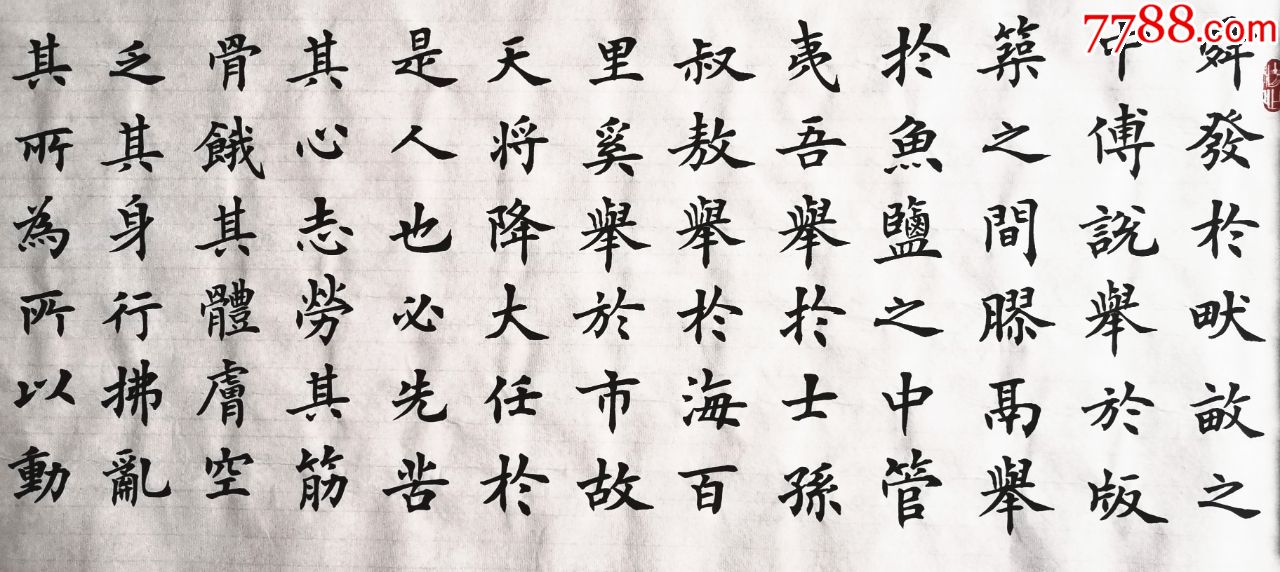 7788.com
舜發於畎畝之
中傅説舉於版
築之間膠鬲舉
於魚鹽之中管
夷吾舉於士孫
叔敖舉於海百
里奚舉於市故
天将降大任於
是人也必先苦
其心志勞其筋
骨餓其體膚空
乏其身行拂亂
其所為所以動